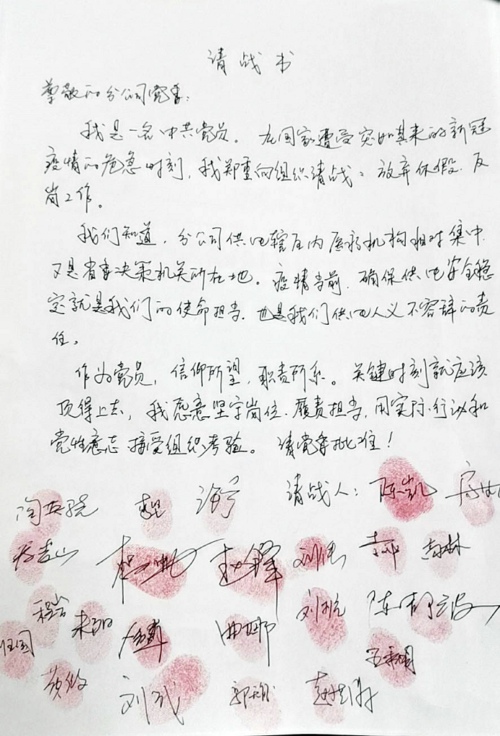 请战书
尊敬的分公司党委:
我是一名中共党员。在国家遭受突如其来的新冠
疫情的危急时刻,我郑重向组织请战:放弃休假、反
岗工作。
我们知道,分公司供电辖区内医疗机构相对集中
又是省委决策机关所在地。疫情当前,确保供电安全稳
定就是我们的使命担当,也是我们供电人义不容辞的责
任。
作为党员,信仰所望,职责所系。关键时刻就应该
顶得上去,我愿意坚守岗位、履责担当,用实际行动和
党性意志接受组织考验。请党委批准!
请战人:陈凯
赵锋 刘
刘
曲娜
刘成